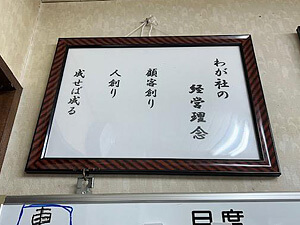 わが社の
経営理念
顧客創り
人創り
成せば成る
月度